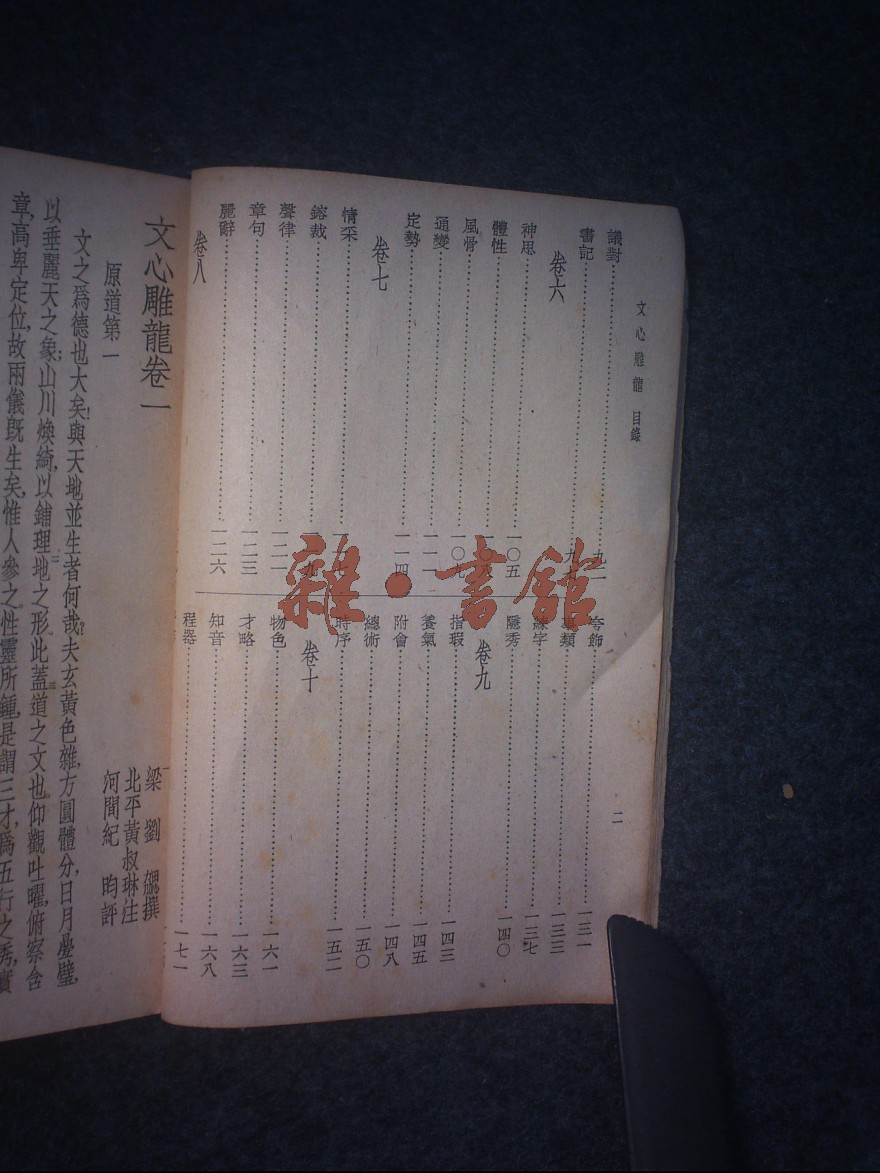 文心雕龍 目錄
二
議對
書記
卷六
神思 一〇五
體性
風骨 一〇九
通變 一一一
定勢 一一四
卷七
情采
鎔裁
聲律 一二一
章句 一二三
麗辭 一二六
卷八
夸飾 一三一
類 一三三
字 一三七
隱秀 一四〇
卷九
指瑕 一四三
養氣 一四五
附會 一四八
總術 一五〇
時序 一五二
卷十
物色 一六一
才略 一六三
知音 一六八
程器 一七一
文心雕龍卷一
梁 劉勰撰
北平黃叔琳注
河間紀 昀評
原道第一
文之爲德也大矣!與天地並生者何哉?夫玄黃色雜,方圓體分,日月疊璧,
以垂麗天之象;山川煥綺,以鋪理地之形此蓋道之文也仰觀吐曜,俯察含
章,高卑定位,故兩儀既生矣,惟人參之,性靈所鍾,是謂三才,爲五行之秀,實
雜·書館